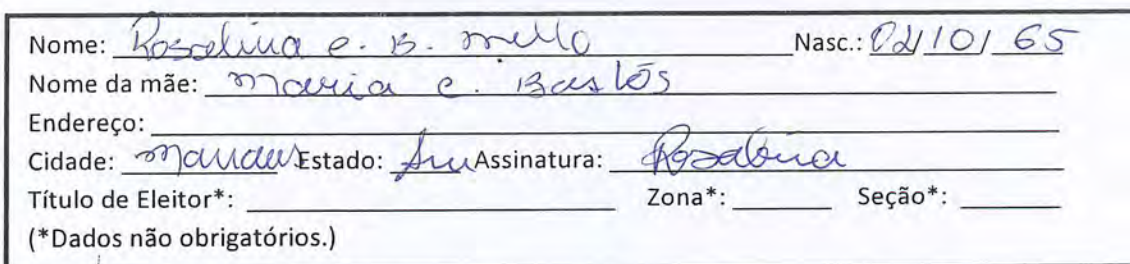 Nome: Roselina e. B. mello Nasc.: 02/10/65
Nome da mãe: maria e. Bastos
Endereço:
Cidade: manaus Estado: Am Assinatura:
Título de Eleitor*: Zona*: Seção*:
(*Dados não obrigatórios.)